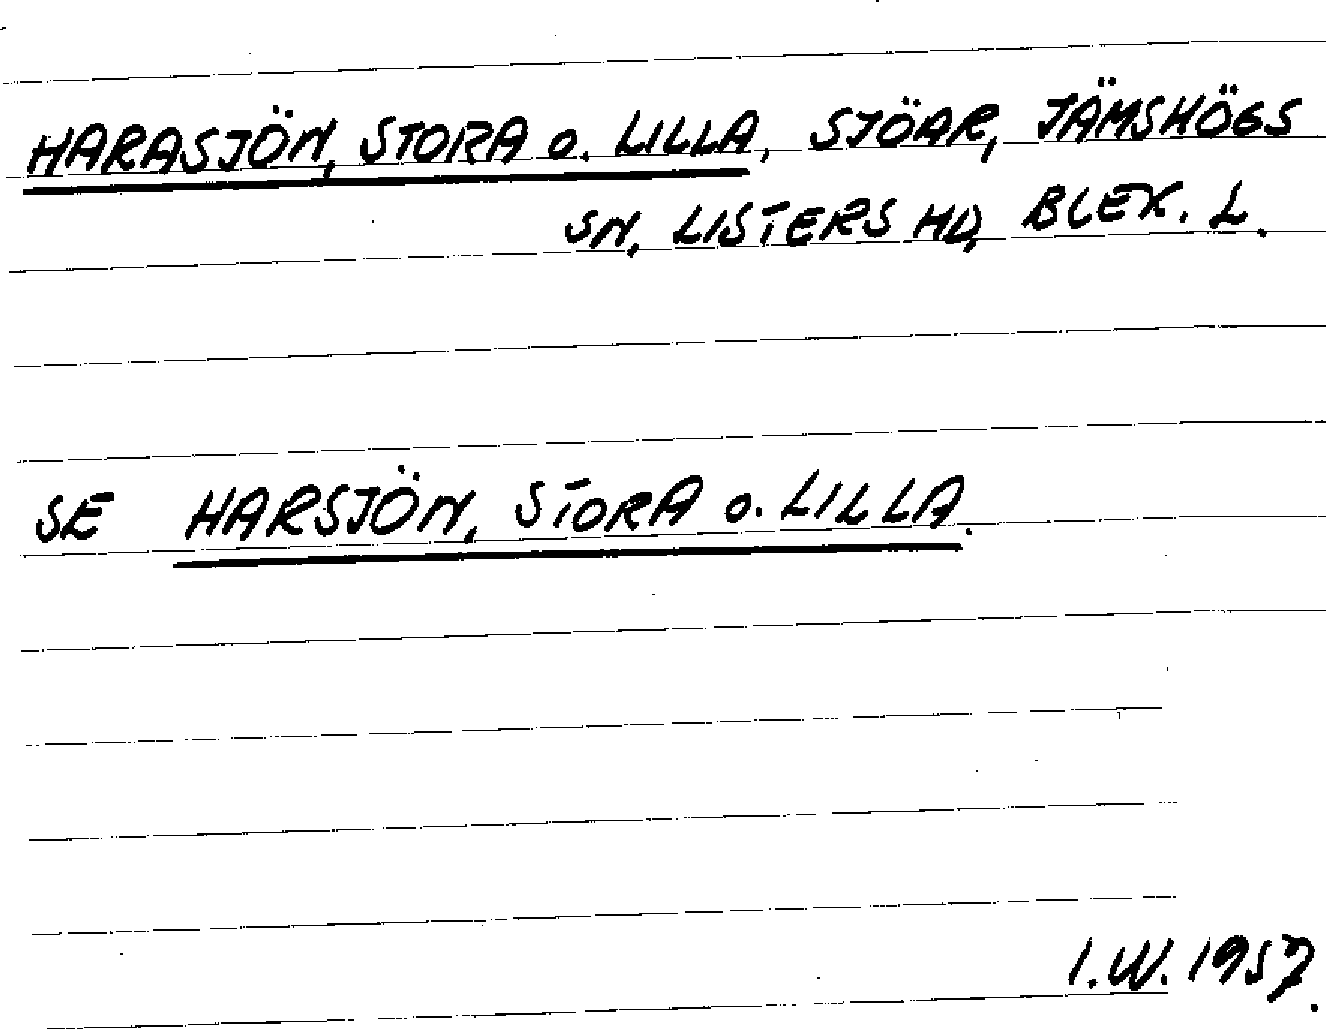 HARASJÖN, STORA o. LILLA, SJÖAR, JÄMSHÖGS
SN, LISTERS HD, BLEK. L.
SE HARSJÖN, STORA o. LILLA.
I.W. 1957.